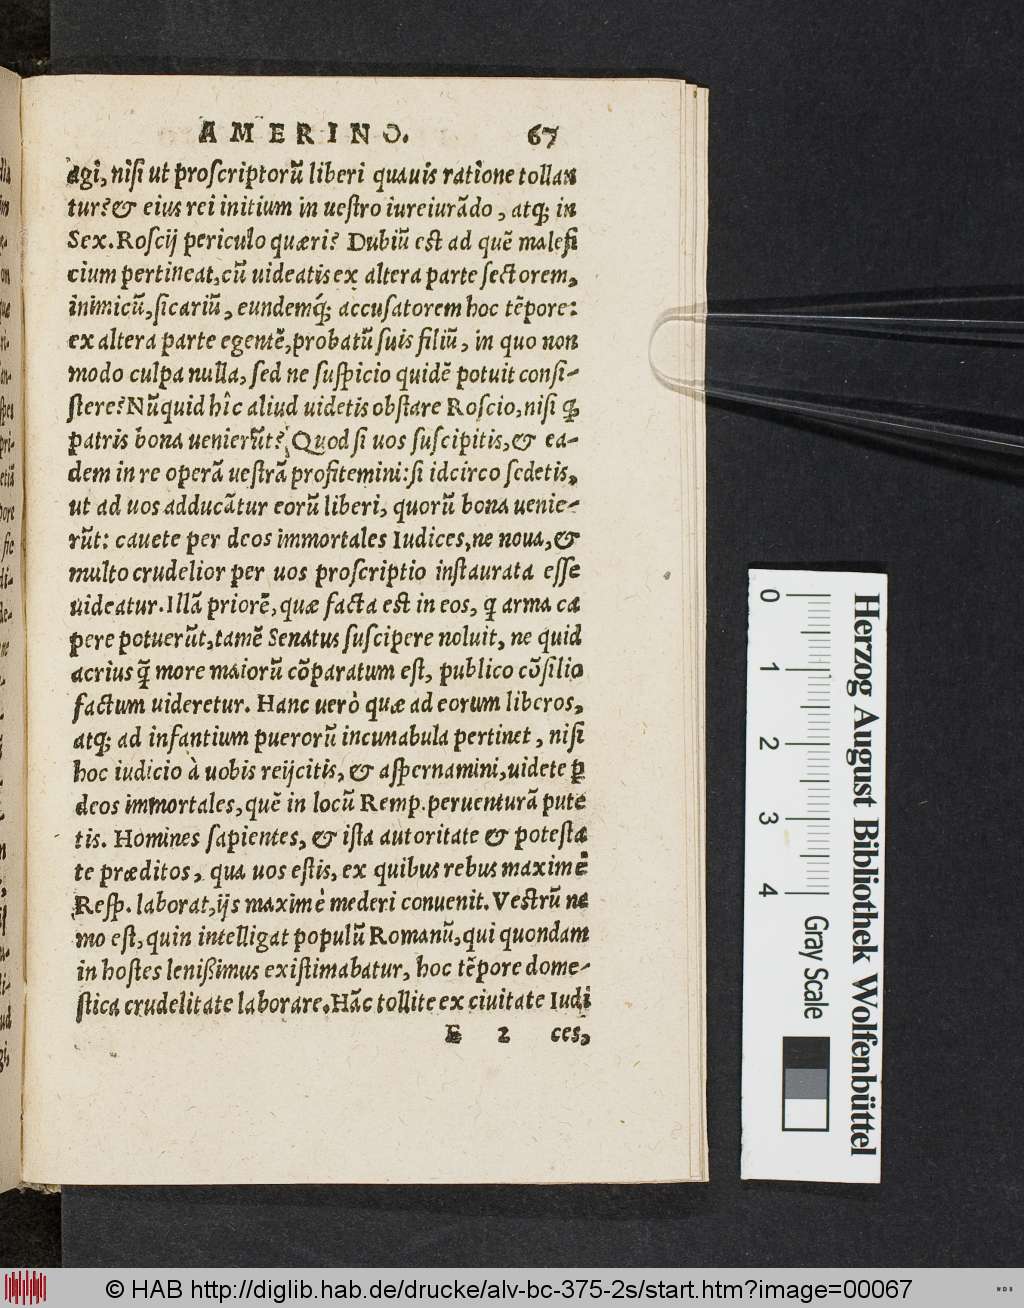 AMERINO. 67
agi, nisi ut proscriptorũ liberi quauis ratione tollan
tur? & eius rei initium in uestro iureiurãdo, atq; in
Sex. Roscij periculo quæri? Dubiũ est ad quẽ malefi
cium pertineat, cũ uideatis ex altera parte sectorem,
inimicũ, sicariũ, eundemq́; accusatorem hoc tẽpore:
ex altera parte egentẽ, probatũ suis filiũ, in quo non
modo culpa nulla, sed ne suspicio quidẽ potuit consi-
stere? Nũquid hîc aliud uidetis obstare Roscio, nisi ꝙ
patris bona uenierũt? Quod si uos suscipitis, & ea-
dem in re operã uestrã profitemini: si idcirco sedetis,
ut ad uos adducãtur eorũ liberi, quorũ bona uenie-
rũt: cauete per deos immortales Iudices, ne noua, &
multo crudelior per uos proscriptio instaurata esse
uideatur. Illã priorẽ, quæ facta est in eos, q̃ arma ca
pere potuerũt, tamẽ Senatus suscipere noluit, ne quid
acrius q̃ more maiorũ cõparatum est, publico cõsilio
factum uideretur. Hanc uerò quæ ad eorum liberos,
atq; ad infantium puerorũ incunabula pertinet, nisi
hoc iudicio à uobis reijcitis, & aspernamini, uidete ꝑ
deos immortales, quẽ in locũ Remp. peruenturã pute
tis. Homines sapientes, & ista autoritate & potesta
te præditos, qua uos estis, ex quibus rebus maximè
Resp. laborat, ijs maximè mederi conuenit. Vestrũ ne
mo est, quin intelligat populũ Romanũ, qui quondam
in hostes lenißimus existimabatur, hoc tẽpore dome-
stica crudelitate laborare. Hãc tollite ex ciuitate Iudi
E 2 ces,
0 1 2 3 4
Gray Scale
Herzog August Bibliothek Wolfenbüttel
© HAB http://diglib.hab.de/drucke/alv-bc-375-2s/start.htm?image=00067